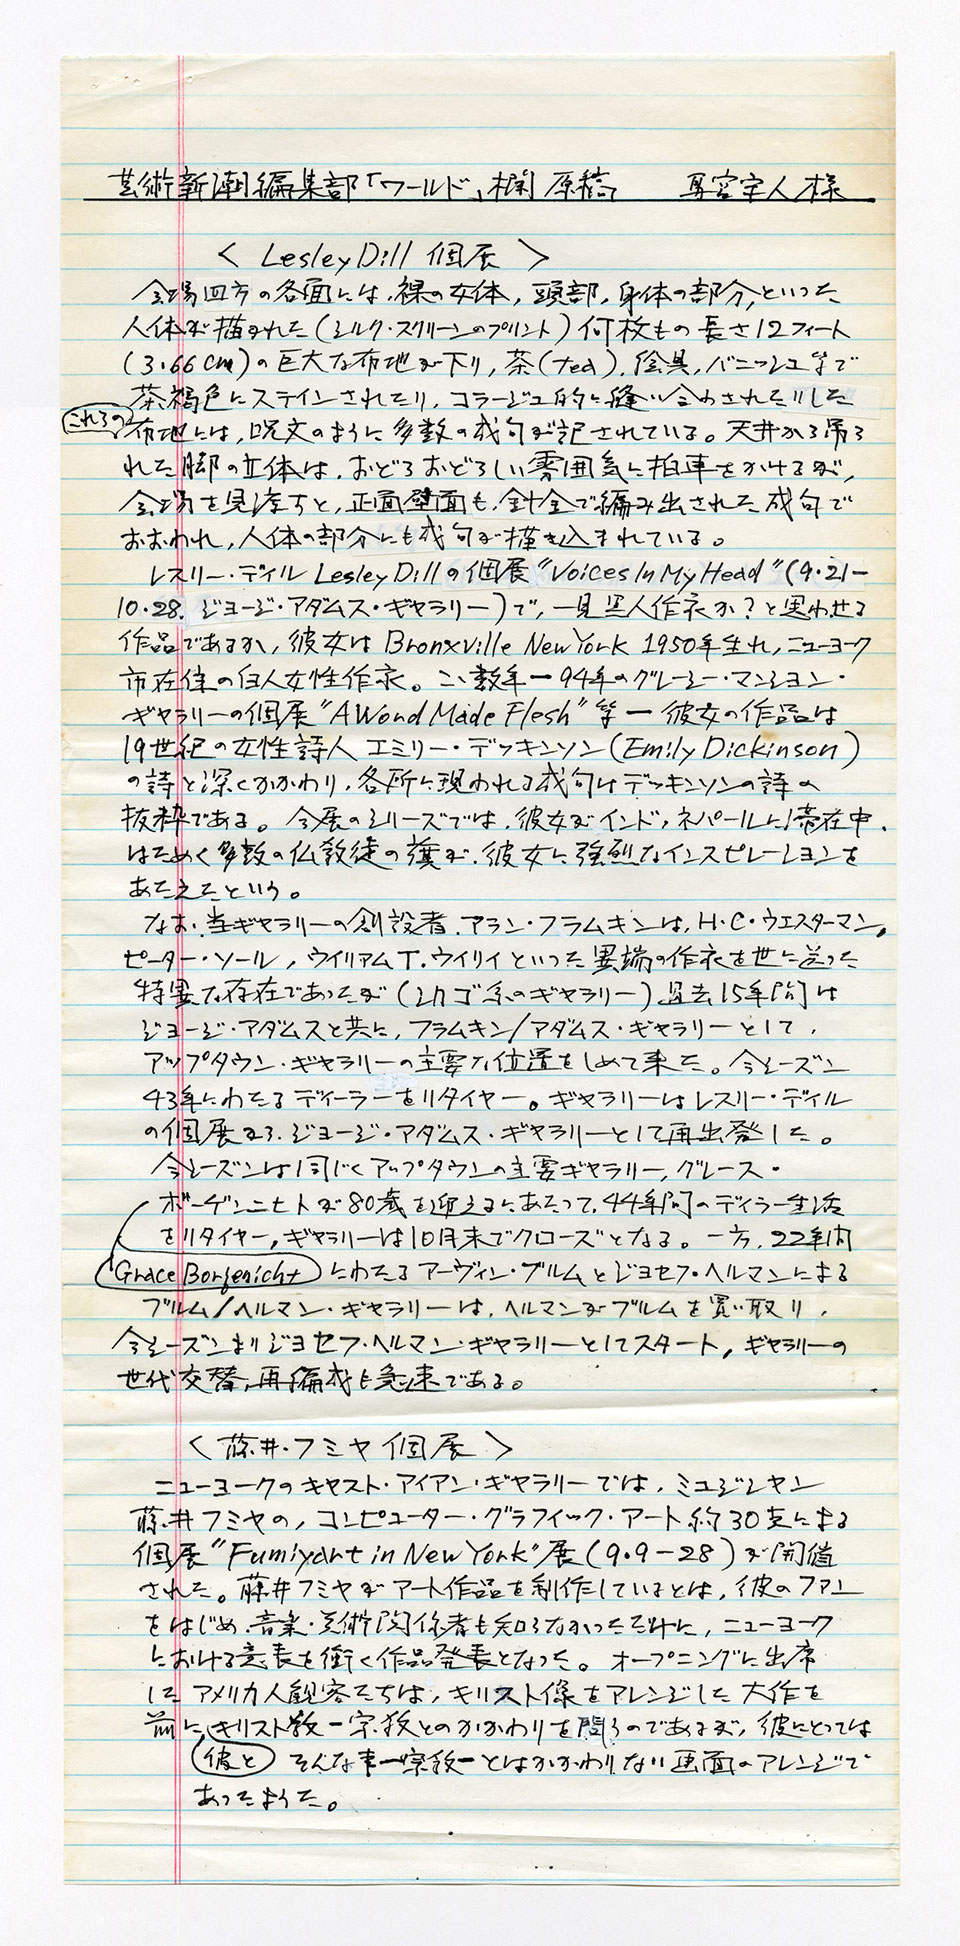 芸術新潮編集部「ワールド」欄原稿 宇人様
〈 Lesley Dill 個展 〉
会場四方の各面には、裸の女体，頭部，身体の部分，といった
人体が描かれた（シルク・スクリーンのプリント）何枚もの長さ12フィート
（3.66cm）の巨大な布地が下り，茶（tea），絵具，バニッシュ等で
茶褐色にステインされたり，コラージュ的に縫い合わされたりした
これらの 布地には，呪文のように多数の成句が記されている。天井から吊ら
れた脚の立体は，おどろおどろしい雰囲気に拍車をかけるが，
会場を見渡すと，正面壁面も，針金で編み出された成句で
おおわれ，人体の部分にも成句が描き込まれている。
レスリー・ディル Lesley Dillの個展“Voices In My Head”（9・21－
10・28. ジョージ・アダムス・ギャラリー）で，一見黒人作家か？と思わせる
作品であるが，彼女は Bronxville New York 1950年生れ，ニューヨーク
市在住の白人女性作家。ここ数年ー94年のグレーシー・マンション・
ギャラリーの個展“A Word Made Flesh”等ー彼女の作品は
19世紀の女性詩人 エミリー・デッキンソン（Emily Dickinson）
の詩と深くかかわり，各所に現われる成句はデッキンソンの詩の
抜粋である。今展のシリーズでは，彼女がインド，ネパールに滞在中，
はためく多数の仏教徒の旗が，彼女に強烈なインスピレーションを
あたえたという。
なお，当ギャラリーの創設者，アラン・フラムキンは，H・C・ウエスターマン，
ピーター・ソール，ウイリアムT.ウイリイといった異端の作家を世に送った
特異な存在であったが（シカゴ系のギャラリー）過去15年間は
ジョージ・アダムスと共に，フラムキン/アダムス・ギャラリーとして，
アップタウン・ギャラリーの主要な位置をしめて来た。今シーズン
43年にわたるディーラーをリタイヤー。ギャラリーはレスリー・ディル
の個展から，ジョージ・アダムス・ギャラリーとして再出発した。
今シーズンは同じくアップタウンの主要ギャラリー，グレース・
ボーゲンニヒトが80歳を迎えるにあたって，44年間のディラー生活
をリタイヤー，ギャラリーは10月末でクローズとなる。一方，22年間
Grace Borgenicht にわたるアーヴィン・ブルムとジョセフ・ヘルマンによる
ブルム/ヘルマン・ギャラリーは，ヘルマンがブルムを買い取り，
今シーズンよりジョセフ・ヘルマン・ギャラリーとしてスタート，ギャラリーの
世代交替，再編成も急速である。
〈 藤井・フミヤ 個展 〉
ニューヨークのキャスト・アイアン・ギャラリーでは，ミュジシャン
藤井フミヤの，コンピューター・グラフィック・アート約30点による
個展“Fumiyart in New York”展（9・9－28）が開催
された。藤井フミヤがアート作品を制作しているとは，彼のファン
をはじめ，音楽・美術関係者も知らなかっただけに，ニューヨーク
における意表を衝く作品発表となった。オープニングに出席
した アメリカ人観客たちは，キリスト像をアレンジした大作を
前に，キリスト教ー宗教とのかかわりを問うのであるが，彼にとっては
彼と そんな事ー宗教ーとはかかわりない画面のアレンジで
あったようだ。